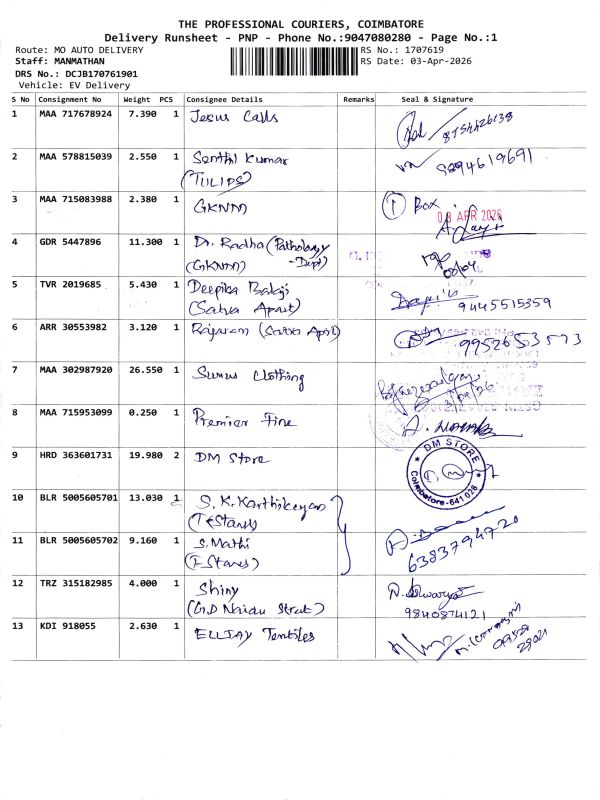 THE PROFESSIONAL COURIERS, COIMBATORE
Delivery Runsheet - PNP - Phone No.:9047080280 - Page No.:1
Route: MO AUTO DELIVERY
RS No.: 1707619
Staff: MANMATHAN
RS Date: 03-Apr-2026
DRS No.: DCJB170761901
Vehicle: EV Delivery
S No Consignment No Weight PCS Consignee Details Remarks Seal & Signature
1 MAA 717678924 7.390 1 Jesus Calls
8754426138
2 MAA 578815039 2.550 1 Senthil Kumar
(TULIPS)
9294619691
3 MAA 715083988 2.380 1 GKNM
1 Box
03 APR 2026
4 GDR 5447896 11.300 1 Dr. Radha (Pathology
-Dept)
(GKNM)
5 TVR 2019685 5.430 1 Deepika Balaji
(Satva Apart)
9445515359
6 ARR 30553982 3.120 1 Rajaram (Satva Aprt)
9952653573
7 MAA 302987920 26.550 1 Sunus Clothing
8 MAA 715953099 0.250 1 Premier Fine
9 HRD 363601731 19.980 2 DM Store
DM STORE
Coimbatore-641026
10 BLR 5005605701 13.030 1 S.K.Karthikeyan
(T Stanes)
11 BLR 5005605702 9.160 1 S.Mathi
(T Stanes)
6383794720
12 TRZ 315182985 4.000 1 Shiny
(G.D Naidu Street)
9840874121
13 KDI 918055 2.630 1 ELLJAY Textiles